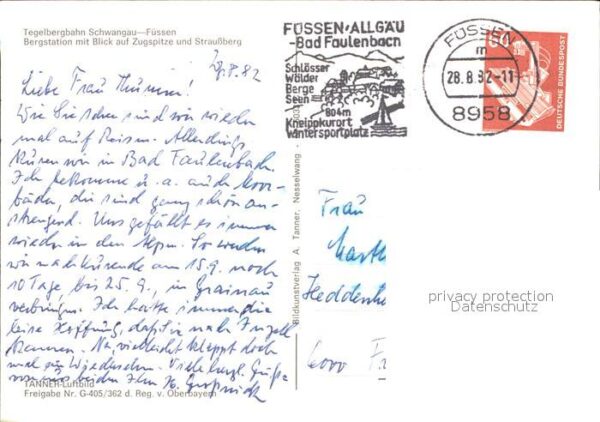 Tegelbergbahn Schwangau—Füssen
Bergstation mit Blick auf Zugspitze und Straußberg
Liebe Frau
Wie Sie sehen sind wir wieder
mal auf Reisen. Allerdings
kuren wir in Bad Faulenbach.
Ich bekomme u. a. auch Moor-
bäder, die sind ganz schön an-
strengend. Uns gefällt es immer
wieder in den Alpen. So werden
wir nach am 15.9. noch
10 Tage bis 25.9. in Grainau
verbringen. Ich hatte immer die
leise Hoffnung, daß Sie nach
kommen. Na, vielleicht klappt doch
mal ein Wiedersehen. Viele herzl. Grüße
von uns beiden Ihre
TANNER-Luftbild
Freigabe Nr. G-405/362 d. Reg. v. Oberbayern
Bildkunstverlag A. Tanner, Nesselwang -
FÜSSEN/ALLGÄU
-Bad Faulenbach
Schlösser
Wälder
Berge
Seen
804m
Kneippkurort
Wintersportplatz
FÜSSEN
m
28.8.82-11
8958
60
DEUTSCHE BUNDESPOST
Frau
6000 Fr
privacy protection
Datenschutz